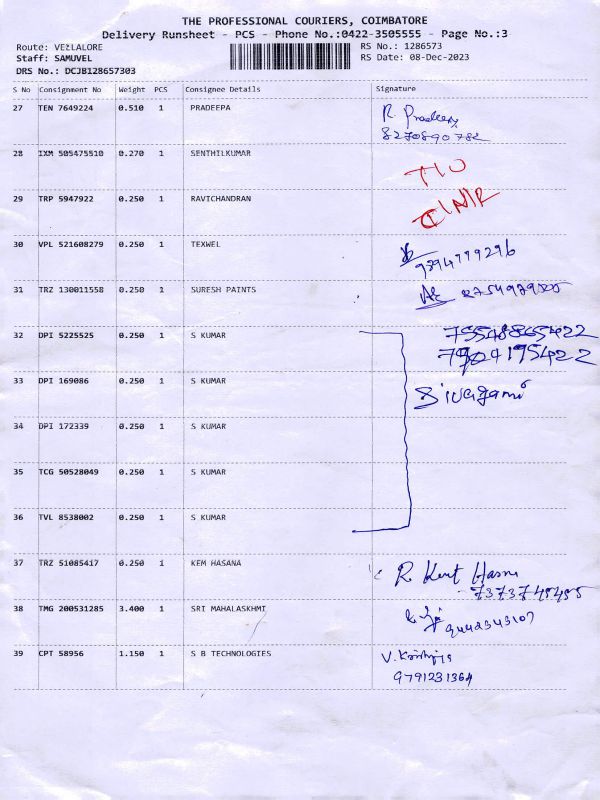 THE PROFESSIONAL COURIERS, COIMBATORE
Delivery Runsheet - PCS - Phone No.:0422-3505555 - Page No.:3
Route: VELLALORE RS No.: 1286573
Staff: SAMUVEL RS Date: 08-Dec-2023
DRS No.: DCJB128657303
S No Consignment No Weight PCS Consignee Details Signature
27 TEN 7649224 0.510 1 PRADEEPA R Pradeepa
8270890782
28 IXM 505475510 0.270 1 SENTHILKUMAR
29 TRP 5947922 0.250 1 RAVICHANDRAN
30 VPL 521608279 0.250 1 TEXWEL
9894779296
31 TRZ 130011558 0.250 1 SURESH PAINTS
32 DPI 5225525 0.250 1 S KUMAR
33 DPI 169086 0.250 1 S KUMAR Sivagami
34 DPI 172339 0.250 1 S KUMAR
35 TCG 50528049 0.250 1 S KUMAR
36 TVL 8538002 0.250 1 S KUMAR
37 TRZ 51085417 0.250 1 KEM HASANA R.
38 TMG 200531285 3.400 1 SRI MAHALASKHMI
9442343107
39 CPT 58956 1.150 1 S B TECHNOLOGIES V.
9791231364